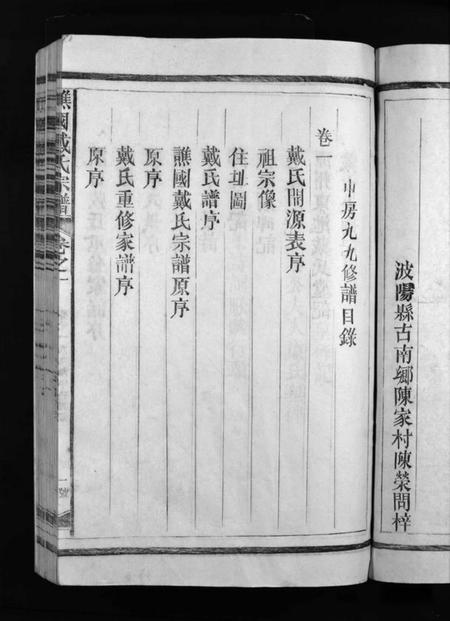 波陽縣古南鄉陳家村陳榮問梓
中房九九修譜目錄
卷一
戴氏開源表序
祖宗像
住址圖
戴氏譜序
譙國戴氏宗譜原序
原序
戴氏重修家譜序
原序
譙國戴氏宗譜 卷之一